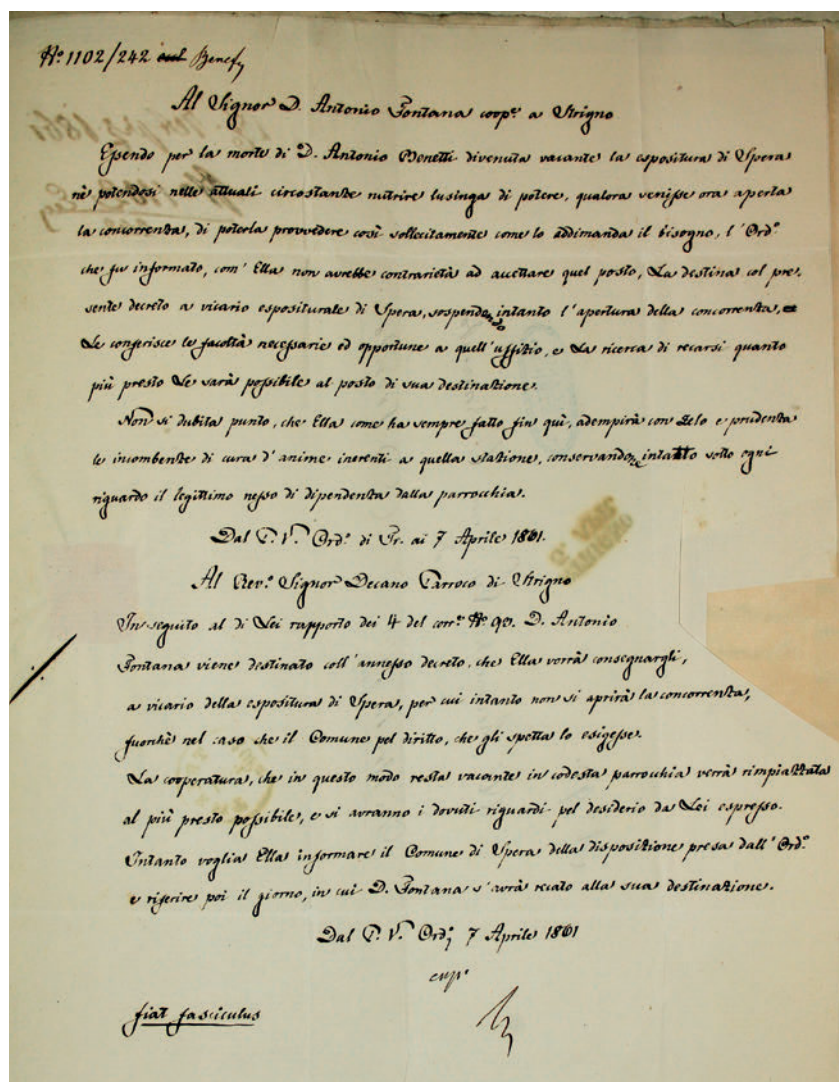 N.º 1102/242 Benef.
Al Signor D. Antonio Fontana coop.e a Strigno
Essendo per la morte di D. Antonio Benetti divenuta vacante la espositura di Spera
nè potendosi nelle attuali circostanze nutrire lusinga di potere, qualora venisse ora aperta
la concorrenza, di poterla provvedere così sollecitamente come lo addimanda il bisogno, l'Ord.º
che fu informato, com' Ella non avrebbe contrarietà ad accettare quel posto, La destina col pre-
sente decreto a vicario espositurale di Spera, sospendendo intanto l'apertura della concorrenza,
Le conferisce le facoltà necessarie ed opportune a quell'uffizio, e La ricerca di recarsi quanto
più presto Le sarà possibile al posto di sua destinazione.
Non si dubita punto, che Ella come ha sempre fatto fin quì, adempirà con zelo e prudenza
le incombenze di cura d'anime inerenti a quella stazione, conservando intatto sotto ogni
riguardo il legittimo nesso di dipendenza dalla parrocchia.
Dal P. V. Ord.º di Tr. ai 7 Aprile 1861.
Al Rev.º Signor Decano Parroco di Strigno
In seguito al di Lei rapporto dei 4 del corr.e N.º 93. D. Antonio
Fontana viene destinato coll'annesso decreto, che Ella vorrà consegnargli,
a vicario della espositura di Spera, per cui intanto non si aprirà la concorrenza,
fuorchè nel caso che il Comune pel diritto, che gli spetta lo esigesse.
La cooperatura, che in questo modo resta vacante in codesta parrocchia verrà rimpiazzata
al più presto possibile, e si avranno i dovuti riguardi pel desiderio da Lei espresso.
Intanto voglia Ella informare il Comune di Spera della disposizione presa dall'Ord.º
e riferire poi il giorno, in cui D. Fontana s'avrà recato alla sua destinazione.
Dal P. V. Ord. 7 Aprile 1861
fiat fasciculus